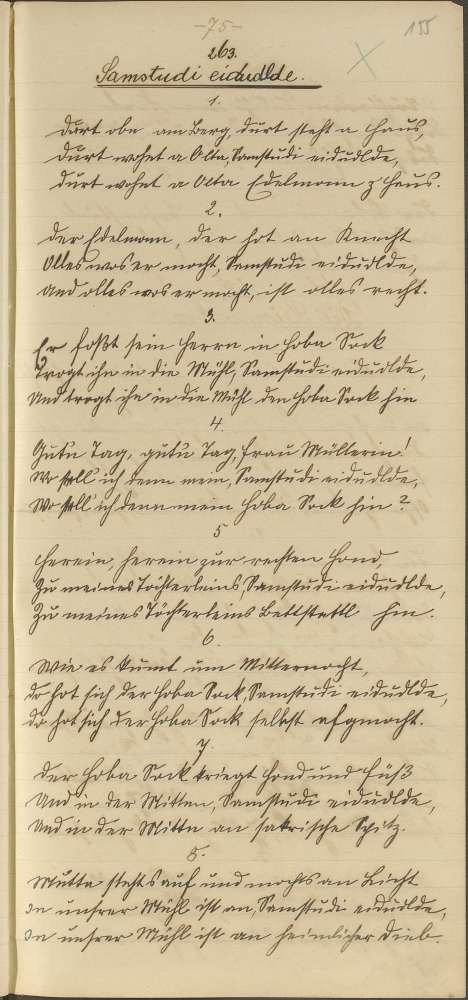 -75-
155
263.
Samstudi eidudlde.
1.
Durt obn am Berg, durt steht a Haus,
Durt wohnt a Olta, Samstudi eidudlde,
Durt wohnt a Olta Edelmonn z' Haus.
2.
Der Edelmonn, der hot an Knecht
Olles wos er mocht, Samstudi eidudlde,
Und olles wos er mocht, ist olles recht.
3.
Er foßt sein Herrn in Hoba Sock
Trogt ihn in die Mühl, Samstudi eidudlde,
Und trogt ihn in die Mühl den Hoba Sock hin
4.
Gut'n Tag, gut'n Tag, Frau Müllerin!
Wo stell' ich denn mein, Samstudi eidudlde,
Wo stell' ich denn mein Hoba Sock hin?
5
Herein, herein zur rechten Hond,
Zu meines Töchterleins, Samstudi eidudlde,
Zu meines Töchterleins Bettstattl hin.
6.
Wie es kumt um Mitternocht,
do hot sich der Hoba Sock, Samstudi eidudlde,
do hot sich der Hoba Sock selbst afgmocht.
7.
Der Hoba Sock kriegt Hond und Füß
Und in der Mitten, Samstudi eidudlde,
Und in der Mittn an sakrische Spitz.
8.
Mutta stehts auf und mochts an Licht
In unsrer Mühl ist an, Samstudi eidudlde,
In unsrer Mühl ist an heimlicher Dieb.